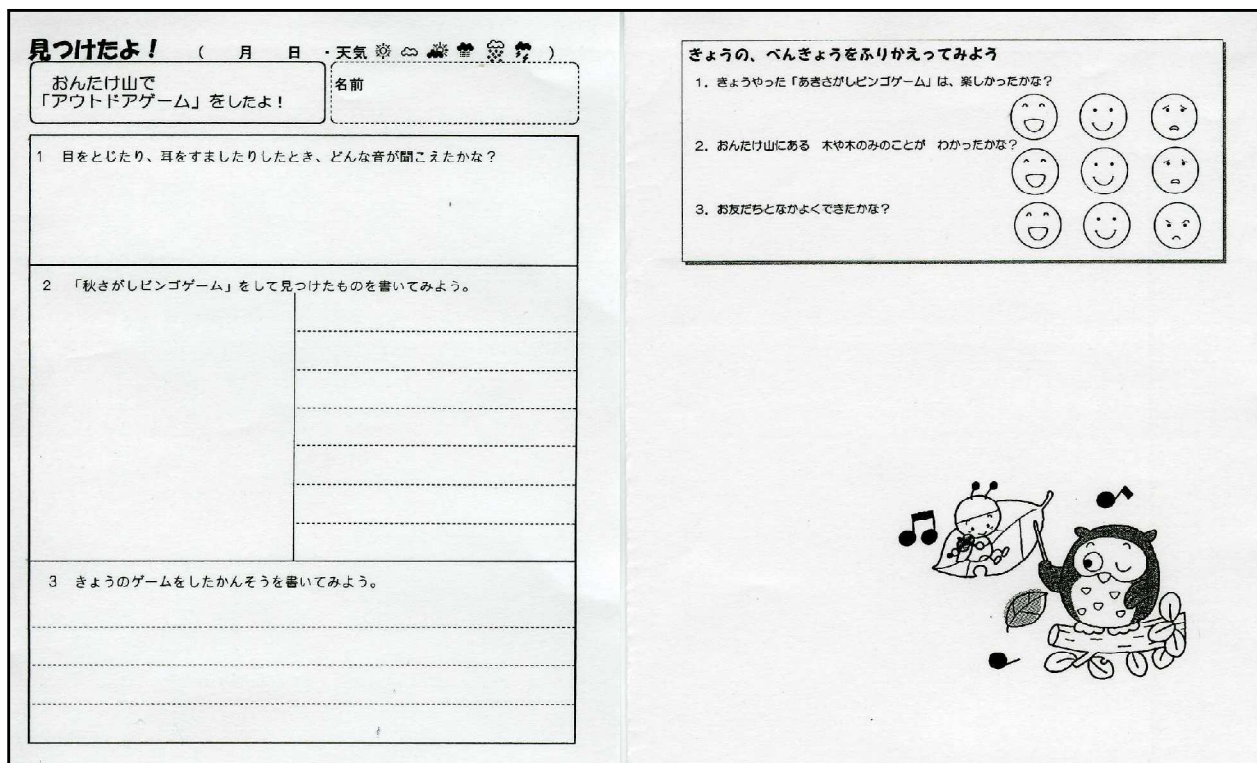 見つけたよ！ （　月　日　・天気　）
おんたけ山で
「アウトドアゲーム」をしたよ！
名前
1　目をとじたり、耳をすましたりしたとき、どんな音が聞こえたかな？
2　「秋さがしビンゴゲーム」をして見つけたものを書いてみよう。
3　きょうのゲームをしたかんそうを書いてみよう。
きょうの、べんきょうをふりかえってみよう
1．きょうやった「あきさがしビンゴゲーム」は、楽しかったかな？
2．おんたけ山にある　木や木のみのことが　わかったかな？
3．お友だちとなかよくできたかな？